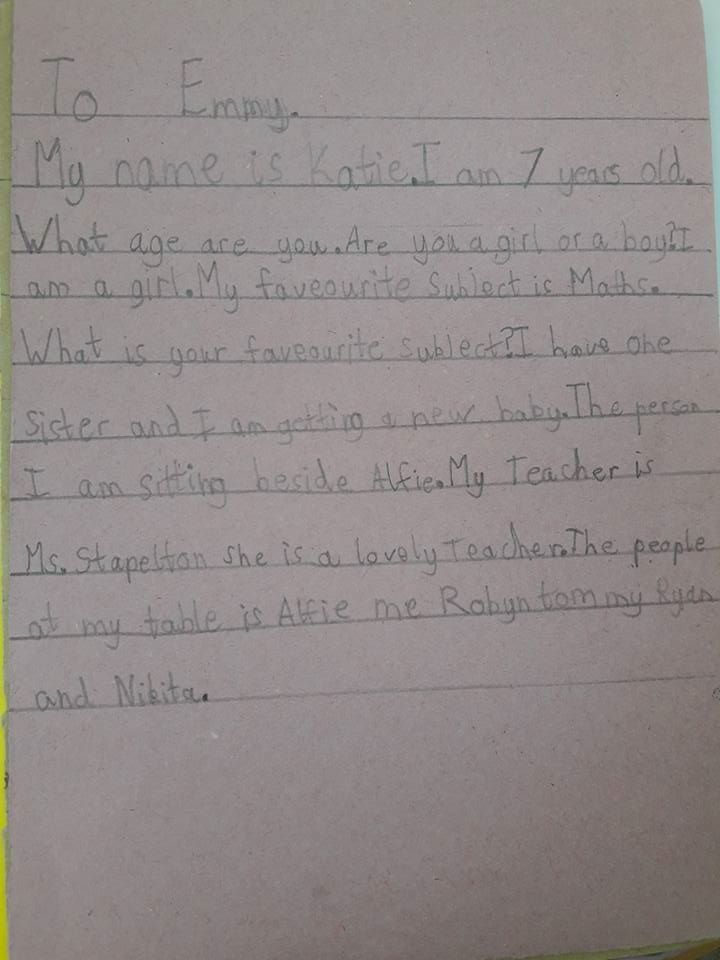 To Emmy.
My name is Katie.I am 7 years old.
What age are you.Are you a girl or a boy?I
am a girl.My faveourite Subject is Maths.
What is your faveourite subject?I have one
Sister and I am getting a new baby.The person
I am sitting beside Alfie.My Teacher is
Ms. Stapelton she is a lovely Teacher.The people
at my table is Alfie me Robyn tommy Ryan
and Nikita.